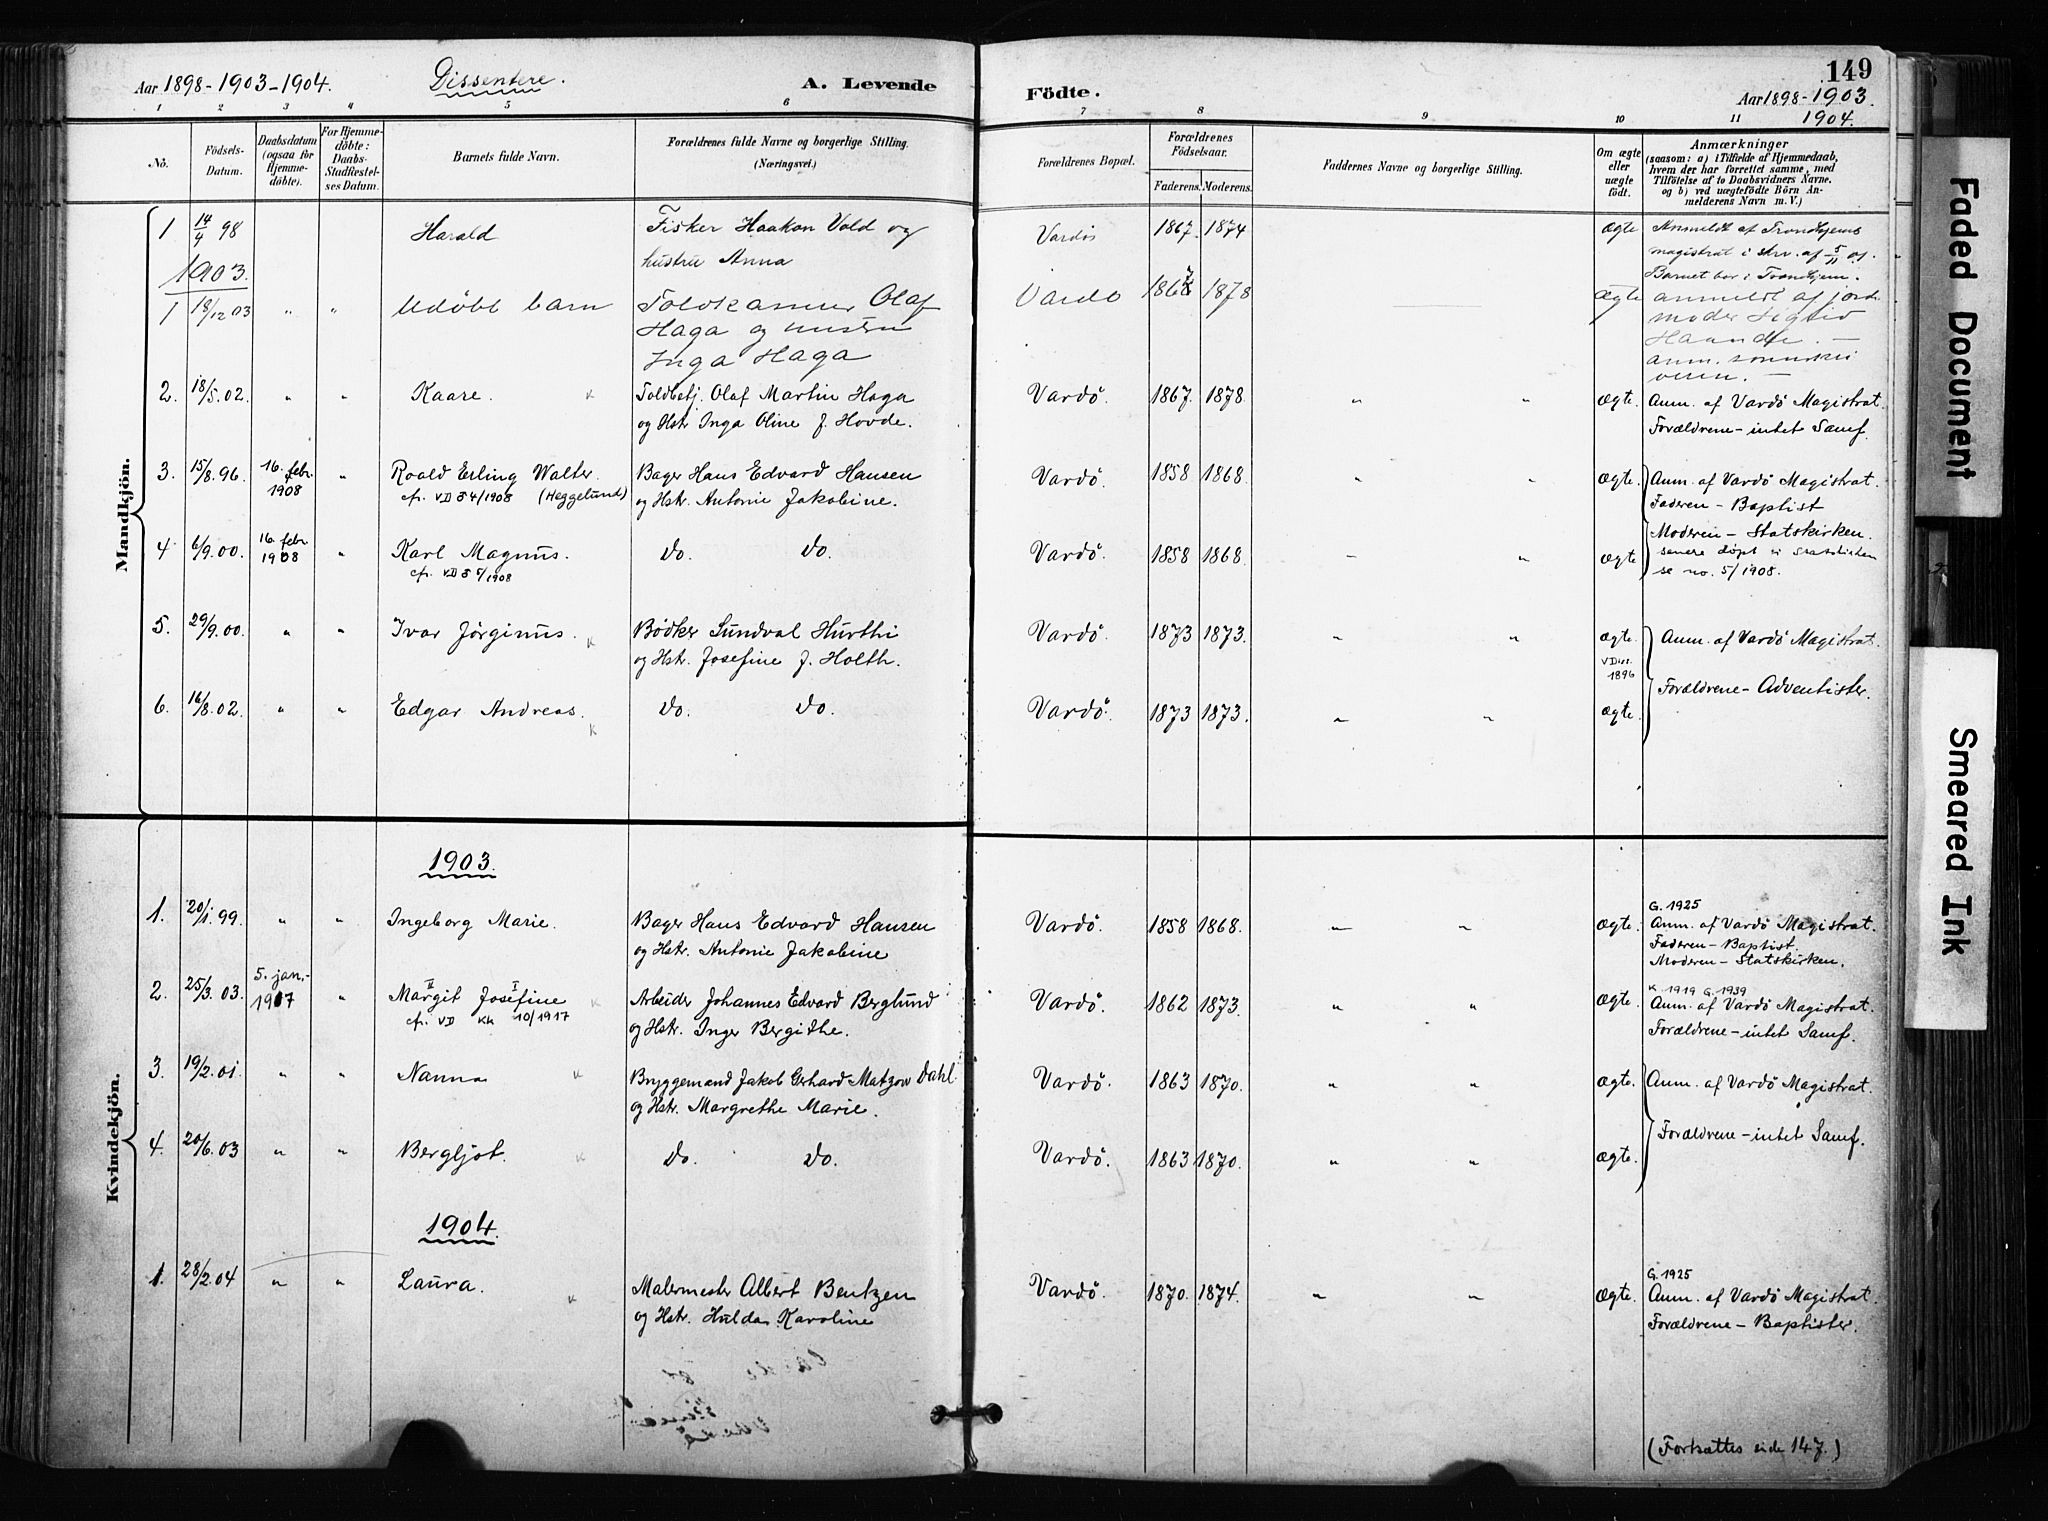 Aar 1898-1903-1904. Dissentere. A. Levende Födte. 149
Aar 1898-1903.
1904.
1 2 3 " 5 6 7 8 9 10 11
No.
Födsels-
Datum.
Daabsdatum
(ogsaa for
Hjemme-
döbte).
For Hjemme-
döbte:
Daabs-
Stadfæstel-
ses Datum.
Barnets fulde Navn.
Forældrenes fulde Navne og borgerlige Stilling.
(Næringsvei.)
Forældrenes Bopæl.
Forældrenes
Födselsaar.
Faderens. Moderens.
Faddernes Navne og borgerlige Stilling.
Om ægte
eller
uægte
födt.
Anmærkninger
(saasom: a) i Tilfælde af Hjemmedaab,
hvem der har forrettet samme, med
Tilföielse af to Daabsvidners Navne.
og b) ved uægtefödte Börn An-
melderens Navn m. V.)
Mandkjön.
1 14/4 98 Harald Fisker Haakon Vold og Vardö 1867. 1874 ægte Anmeldt af Trondhjems
hustru Anna magistrat i skr. af 5/11 01
1903. Barnet bor i Trondhjem.
1 18/12 03 " " Udöbt barn Toldkasserer Olaf Vardö 1867 1878 Ægte anmeldt af jord-
Haga og hustru moder Sigrid
Inga Haga Haande. —
2. 18/5. 02. " " Kaare. Toldbetj. Olaf Martin Haga Vardö. 1867. 1878. " " Ægte. Anm. af Vardö Magistrat.
og Hstr Inga Oline J. Hovde. Forældrene - intet Samf.
3. 15/8. 96. 16. febr. 1908 " Roald Erling Walter. Bager Hans Edvard Hansen Vardö. 1858 1868. " " Ægte. Anm. af Vardö Magistrat.
cfr. VD 4/1908 (Heggelund) og Hstr. Antonie Jakobine. Faderen - Baptist
Moderen - Statskirken.
4 6/9. 00. 16. febr 1908 " Karl Magnus. do. do. Vardö. 1858 1868. — " ægte senere döpt i Statskirken
cfr. VD 5/1908 se no. 5/1908.
5. 29/9. 00. " " Ivar Jörginus. Bödker Sundval Hurthi Vardö. 1873 1873. " " ægte. Anm. af Vardö Magistrat.
og Hstr. Josefine J. Holth. 1896
Forældrene - Adventister.
6. 16/8. 02. " " Edgar Andreas. do. do. Vardö. 1873 1873. " " ægte.
Kvindekjön.
1903.
1. 20/1. 99. " " Ingeborg Marie. Bager Hans Edvard Hansen Vardö. 1858 1868. — " ægte. G. 1925
og Hstr. Antonie Jakobine Anm. af Vardö Magistrat.
Faderen - Baptist.
Moderen - Statskirken.
2. 25/3. 03. 5. jan. 1917 " Margit Josefine Arbeider Johannes Edvard Berglund Vardö. 1862 1873. " " ægte. K. 1919 G. 1939
II I
cfr. VD KK 10/1917 og Hstr. Inger Bergithe. Anm. af Vardö Magistrat.
Forældrene - intet Samf.
3. 19/2. 01. " " Nanna Bryggemand Jakob Gerhard Matzow Dahl Vardö. 1863 1870. " " ægte. Anm. af Vardö Magistrat.
og Hstr. Margrethe Marie.
Forældrene - intet Samf.
4. 20/6. 03 " " Bergljot. do. do. Vardö. 1863 1870. " " ægte.
1904.
1. 28/2. 04 " " Laura. Malermester Albert Bentzen Vardö. 1870. 1874. " " ægte. G. 1925
og Hstr. Hulda Karoline Anm. af Vardö Magistrat.
Forældrene - Baptister.
(Fortsættes side 147.)
Faded Document
Smeared Ink